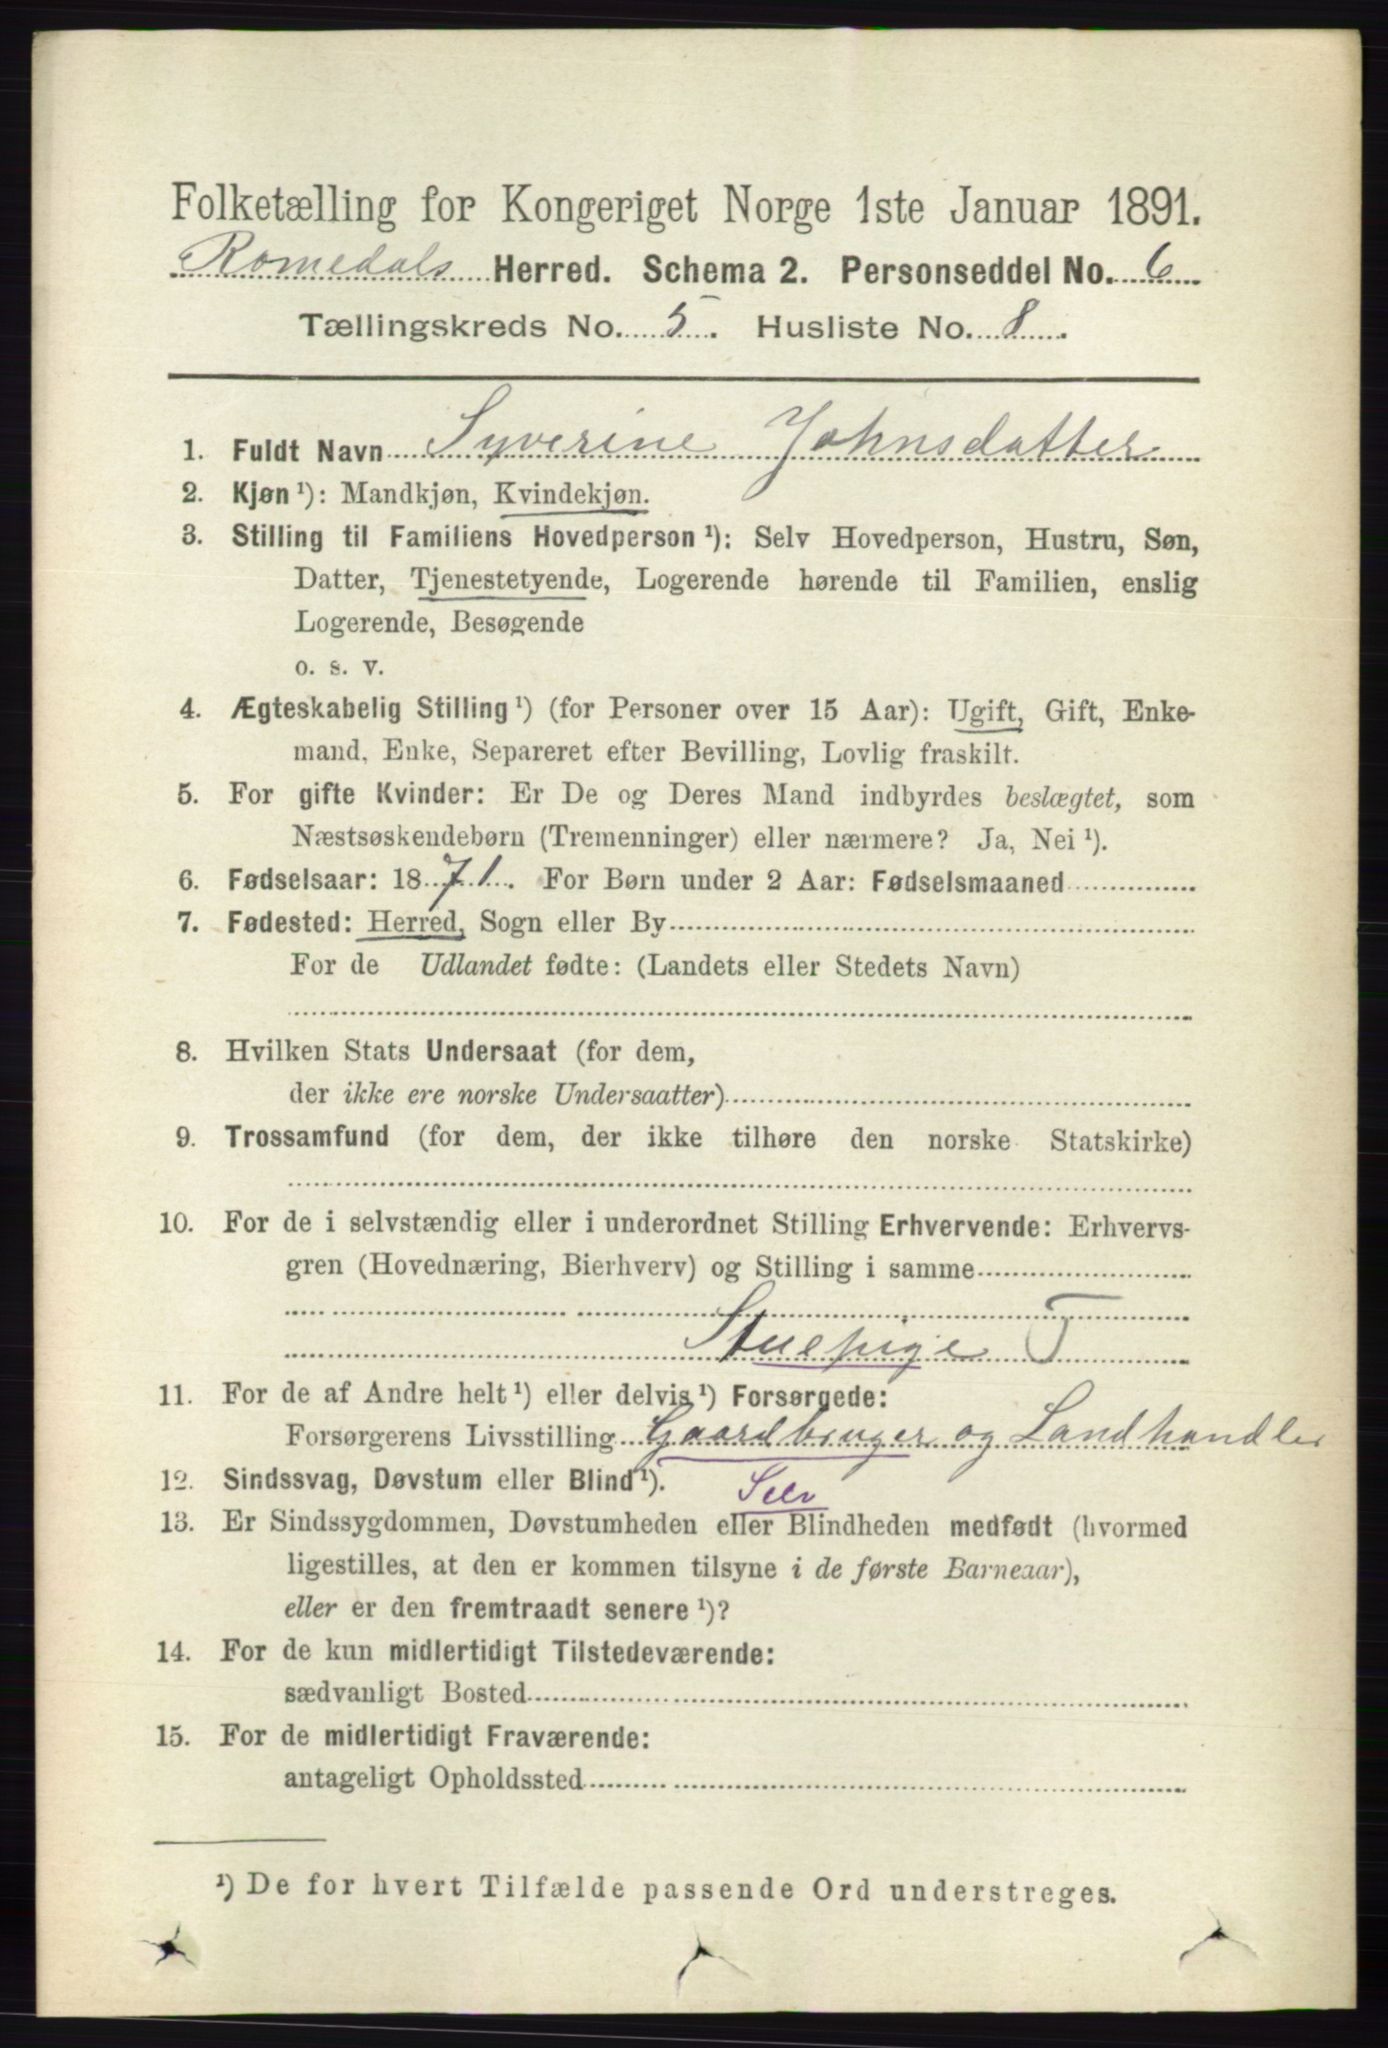 Folketælling for Kongeriget Norge 1ste Januar 1891.
Romedals Herred. Schema 2. Personseddel No. 6
Tællingskreds No. 5. Husliste No. 8.
1. Fuldt Navn Syverine Johnsdatter
2. Kjøn¹): Mandkjøn, Kvindekjøn.
3. Stilling til Familiens Hovedperson¹): Selv Hovedperson, Hustru, Søn,
Datter, Tjenestetyende, Logerende hørende til Familien, enslig
Logerende, Besøgende
o. s. v.
4. Ægteskabelig Stilling¹) (for Personer over 15 Aar): Ugift, Gift, Enke-
mand, Enke, Separeret efter Bevilling, Lovlig fraskilt.
5. For gifte Kvinder: Er De og Deres Mand indbyrdes beslægtet, som
Næstsøskendebørn (Tremenninger) eller nærmere? Ja, Nei¹).
6. Fødselsaar: 1871. For Børn under 2 Aar: Fødselsmaaned
7. Fødested: Herred, Sogn eller By
For de Udlandet fødte: (Landets eller Stedets Navn)
8. Hvilken Stats Undersaat (for dem,
der ikke ere norske Undersaatter)
9. Trossamfund (for dem, der ikke tilhøre den norske Statskirke)
10. For de i selvstændig eller i underordnet Stilling Erhvervende: Erhvervs-
gren (Hovednæring, Bierhverv) og Stilling i samme
Stuepige T
11. For de af Andre helt¹) eller delvis¹) Forsørgede:
Forsørgerens Livsstilling Gaardbruger og Landhandler
12. Sindssvag, Døvstum eller Blind¹). Selv
13. Er Sindssygdommen, Døvstumheden eller Blindheden medfødt (hvormed
ligestilles, at den er kommen tilsyne i de første Barneaar),
eller er den fremtraadt senere¹)?
14. For de kun midlertidigt Tilstedeværende:
sædvanligt Bosted
15. For de midlertidigt Fraværende:
antageligt Opholdssted
¹) De for hvert Tilfælde passende Ord understreges.